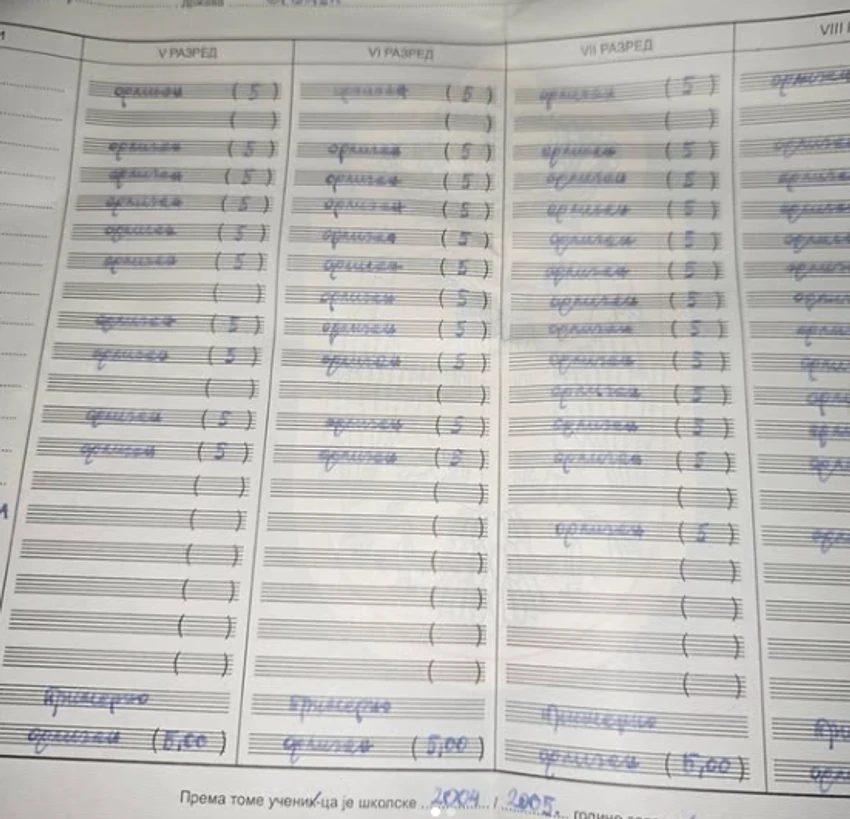 V РАЗРЕД VI РАЗРЕД VII РАЗРЕД VIII
одличан (5) одличан (5) одличан (5) одличан
( ) ( ) ( )
одличан (5) одличан (5) одличан (5) одличан
одличан (5) одличан (5) одличан (5) одличан
одличан (5) одличан (5) одличан (5) одличан
одличан (5) одличан (5) одличан (5) одличан
одличан (5) одличан (5) одличан (5) одличан
( ) одличан (5) одличан (5) одличан
одличан (5) одличан (5) одличан (5) одличан
одличан (5) одличан (5) одличан (5) одличан
( ) ( ) одличан (5)
одличан (5) одличан (5) одличан (5)
одличан (5) одличан (5) одличан (5)
( ) ( ) ( )
( ) ( ) одличан (5)
( ) ( ) ( )
( ) ( ) ( )
( ) ( ) ( )
( ) ( ) ( )
Примерно Примерно Примерно
одличан (5,00) одличан (5,00) одличан (5,00)
Према томе ученик-ца је школске 2004 / 2005. године